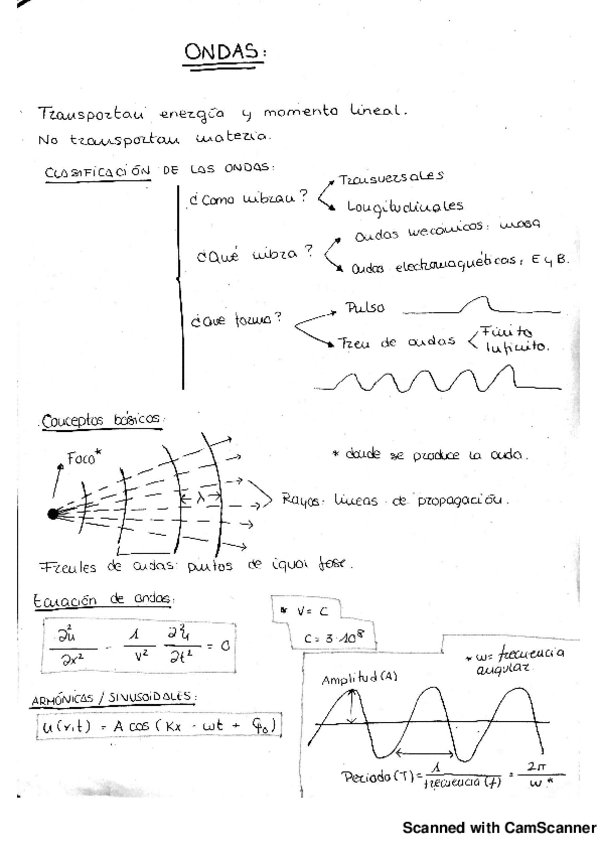 ONDAS:
Transportan energía y momento lineal.
No transportan materia.
CLASIFICACIÓN DE LAS ONDAS:
¿Cómo vibran?
Transversales
Longitudinales
¿Qué vibra?
Ondas mecánicas: masa
Ondas electromagnéticas: E y B.
¿Qué forma?
Pulso
Tren de ondas
Finito
Infinito.
Conceptos básicos:
Foco*
* donde se produce la onda.
λ
Rayos: líneas de propagación.
Frentes de ondas: puntos de igual fase.
Ecuación de ondas:
∂²u/∂x² - 1/v² ∂²u/∂t² = 0
* v = c
c = 3·10⁸
* w = frecuencia
angular.
Amplitud (A)
ARMÓNICAS / SINUSOIDALES:
u(r,t) = A cos (Kx - wt + φ₀)
Periodo (T) = 1/frecuencia (f) = 2π/w*
Scanned with CamScanner